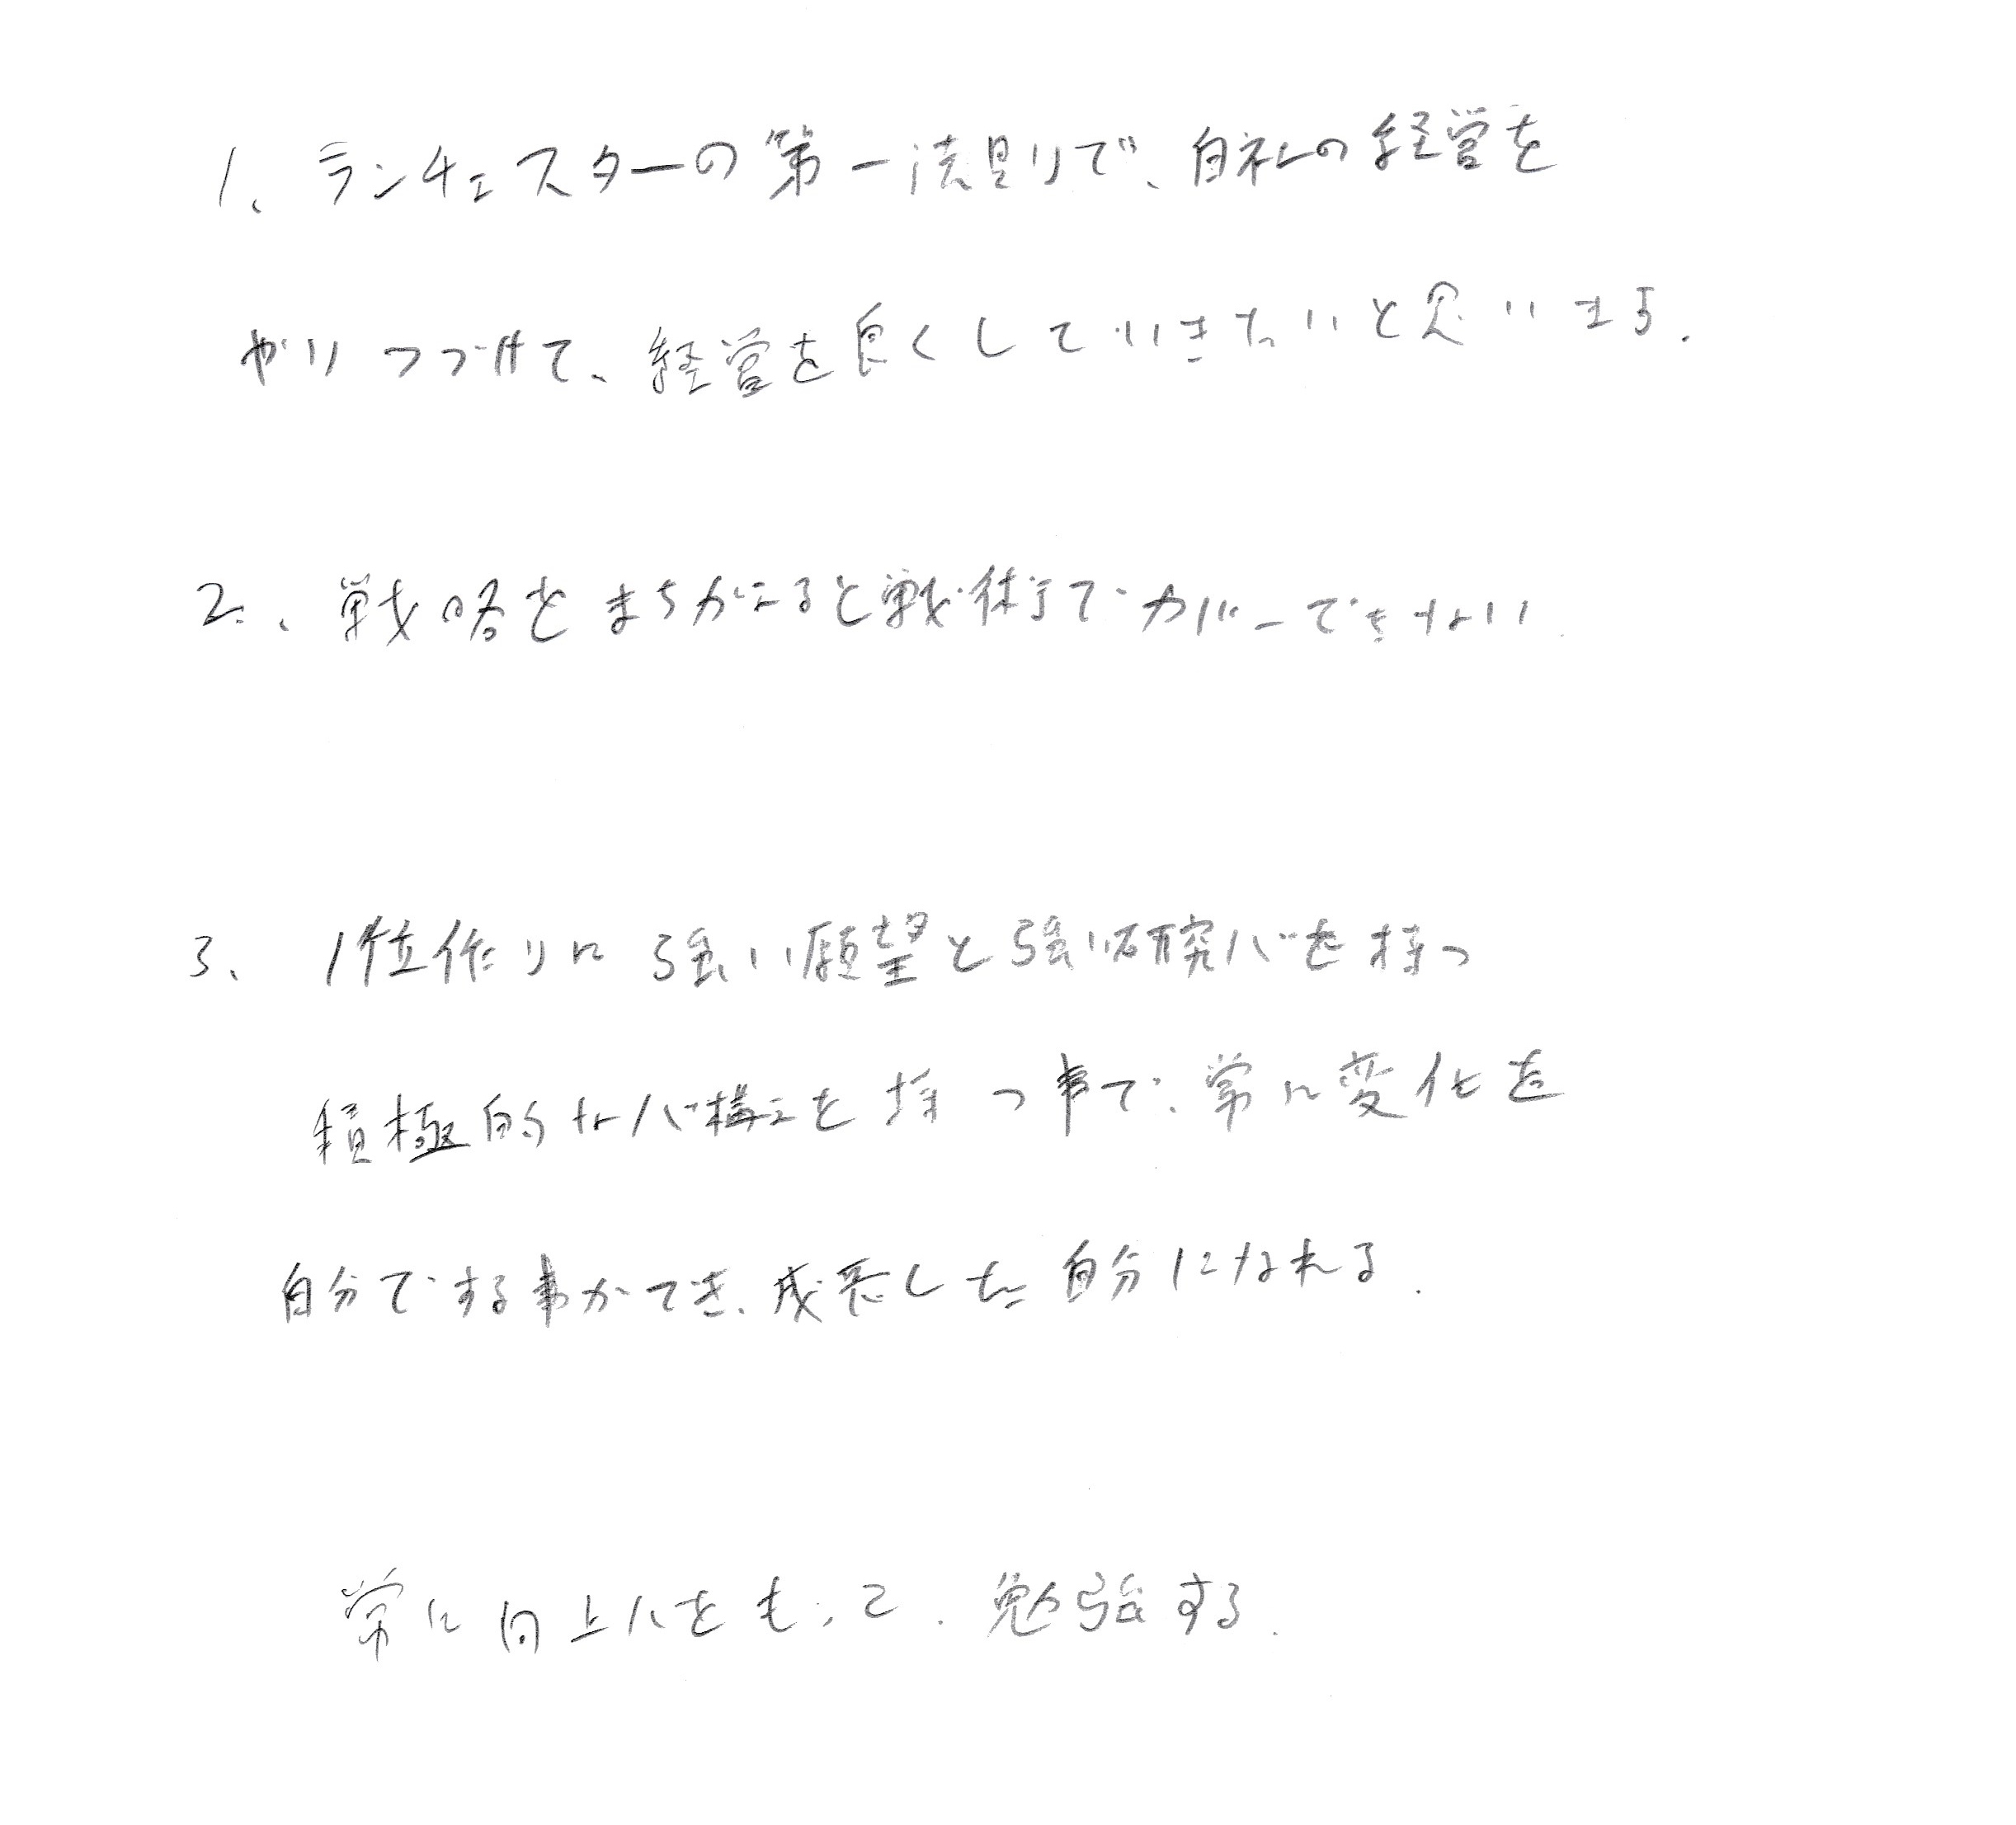 1、ランチェスターの第一法則で、自社の経営を
やりつづけて、経営を良くしていきたいと思います.
2、戦略をまちがえると戦術でカバーできない.
3、1位作りに強い願望と強い研究心を持つ
積極的な心構えを持つ事で、常に変化を
自分でする事ができ、成長した自分になれる.
常に向上心をもって、勉強する.